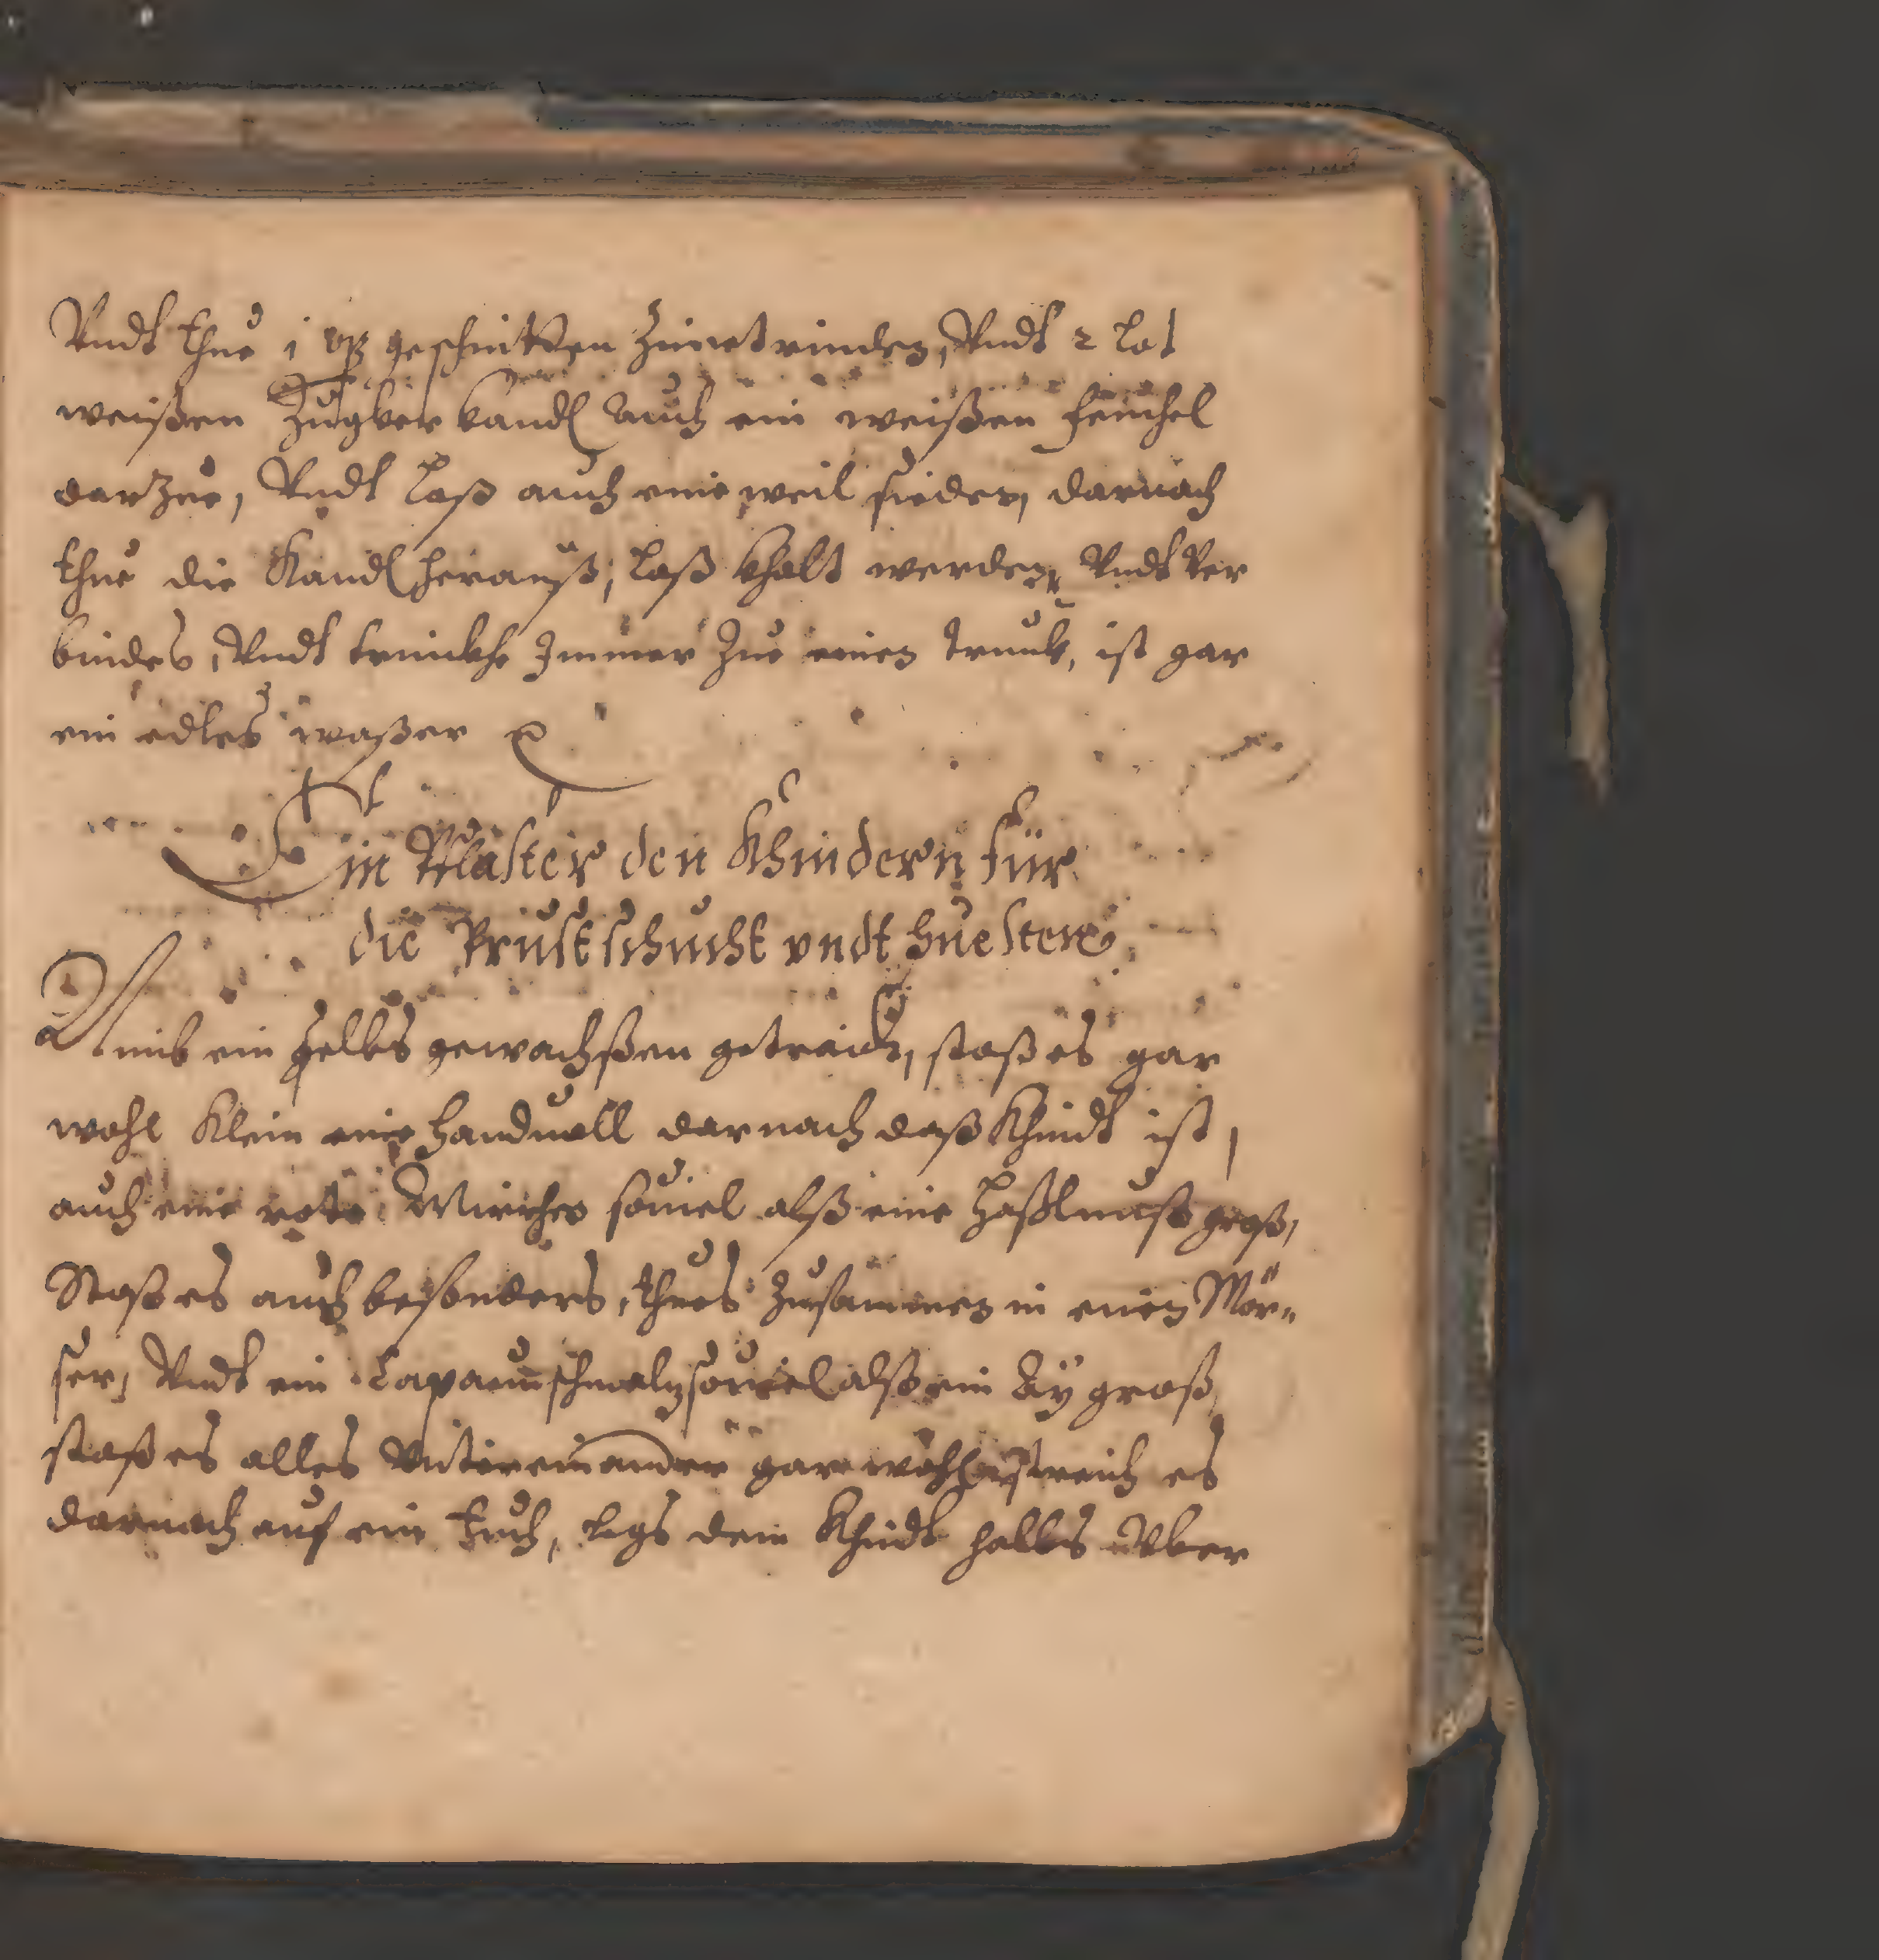 Vndt thue 1 geschnitten Zimetrinden, Vndt 2 lot
weißen Zugker kandl Auch ein weißen fenchel
darzue, Vndt laß auch eine weil sieden, darnach
thue die Kandl herauß, laß khalt werden, Vndt Ver
bindes, Vndt trinckhe Immer Zue einen trunk, ist gar
ein edles waßer
Ein Pflaster den Khindern für
die Prustschucht vndt huesten
Nimb ein gelbs gewachßen getraidt, stoß es gar
wohl Klein eine handuoll darnach daß Khindt ist,
auch eine rote Mirrhen souiel alß eine haßlnuß groß,
Stoß es auch besonders, thues Zusammen in einen Mör„
ser, Vndt ein Capaunschmalz souiel alß ein Ay groß,
stoß es alles Vntereinander gar wohl, streich es
darnach auf ein tuch, legs dem Khindt halbs Vber